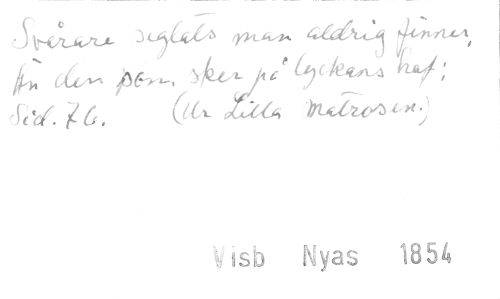 Svårare seglats man aldrig finner,
Än den som sker på lyckans haf;
Sid. 76. (Ur Lilla Matrosen.)
Visb Nyas 1854